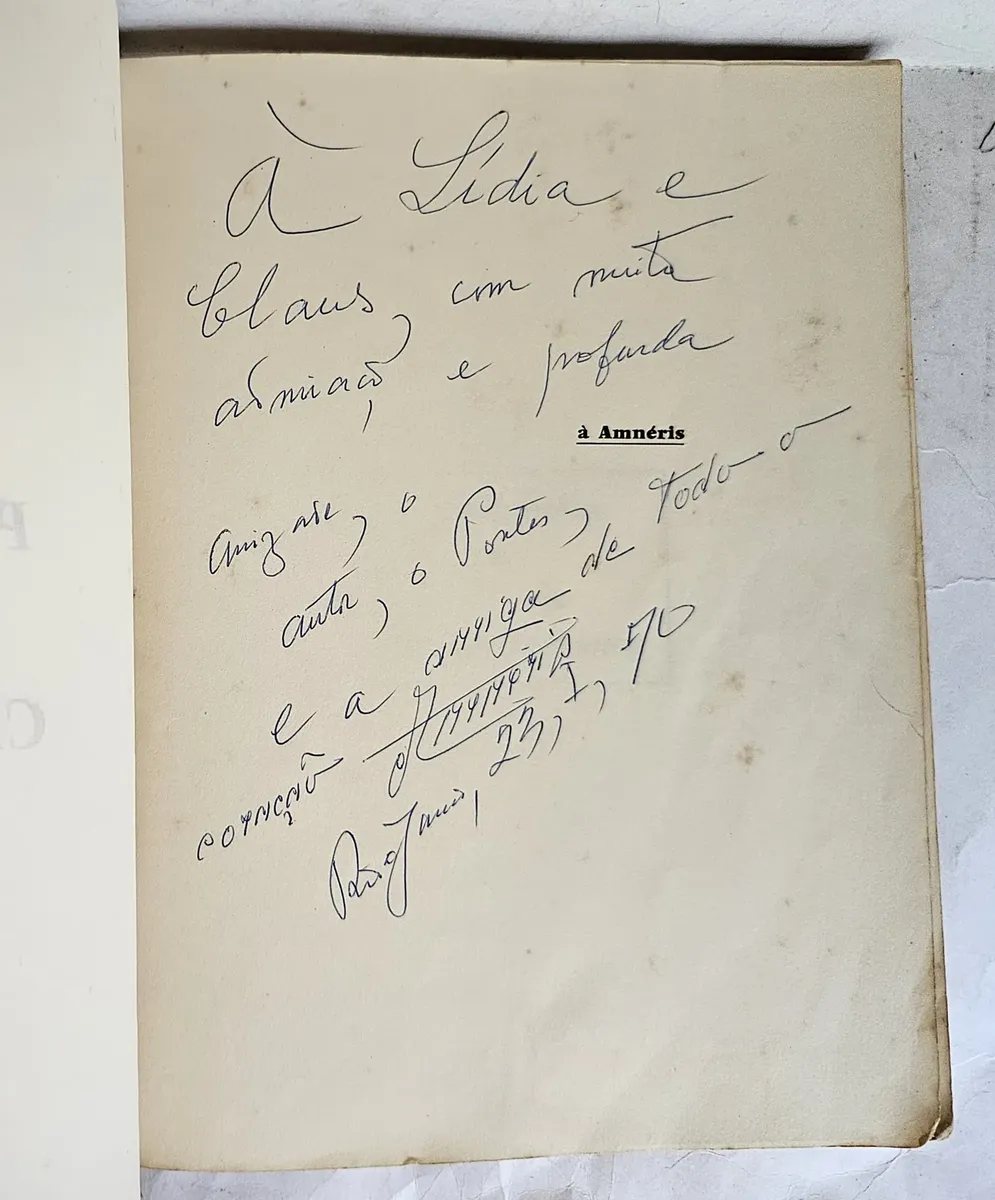 À Lídia e
Claus, com muita
admiação e profunda
à Amnéris
amizade, o
autor, o Pontes,
e a amiga de todo o
coração Amnéris
Rio de Janeiro, 23, I, 70